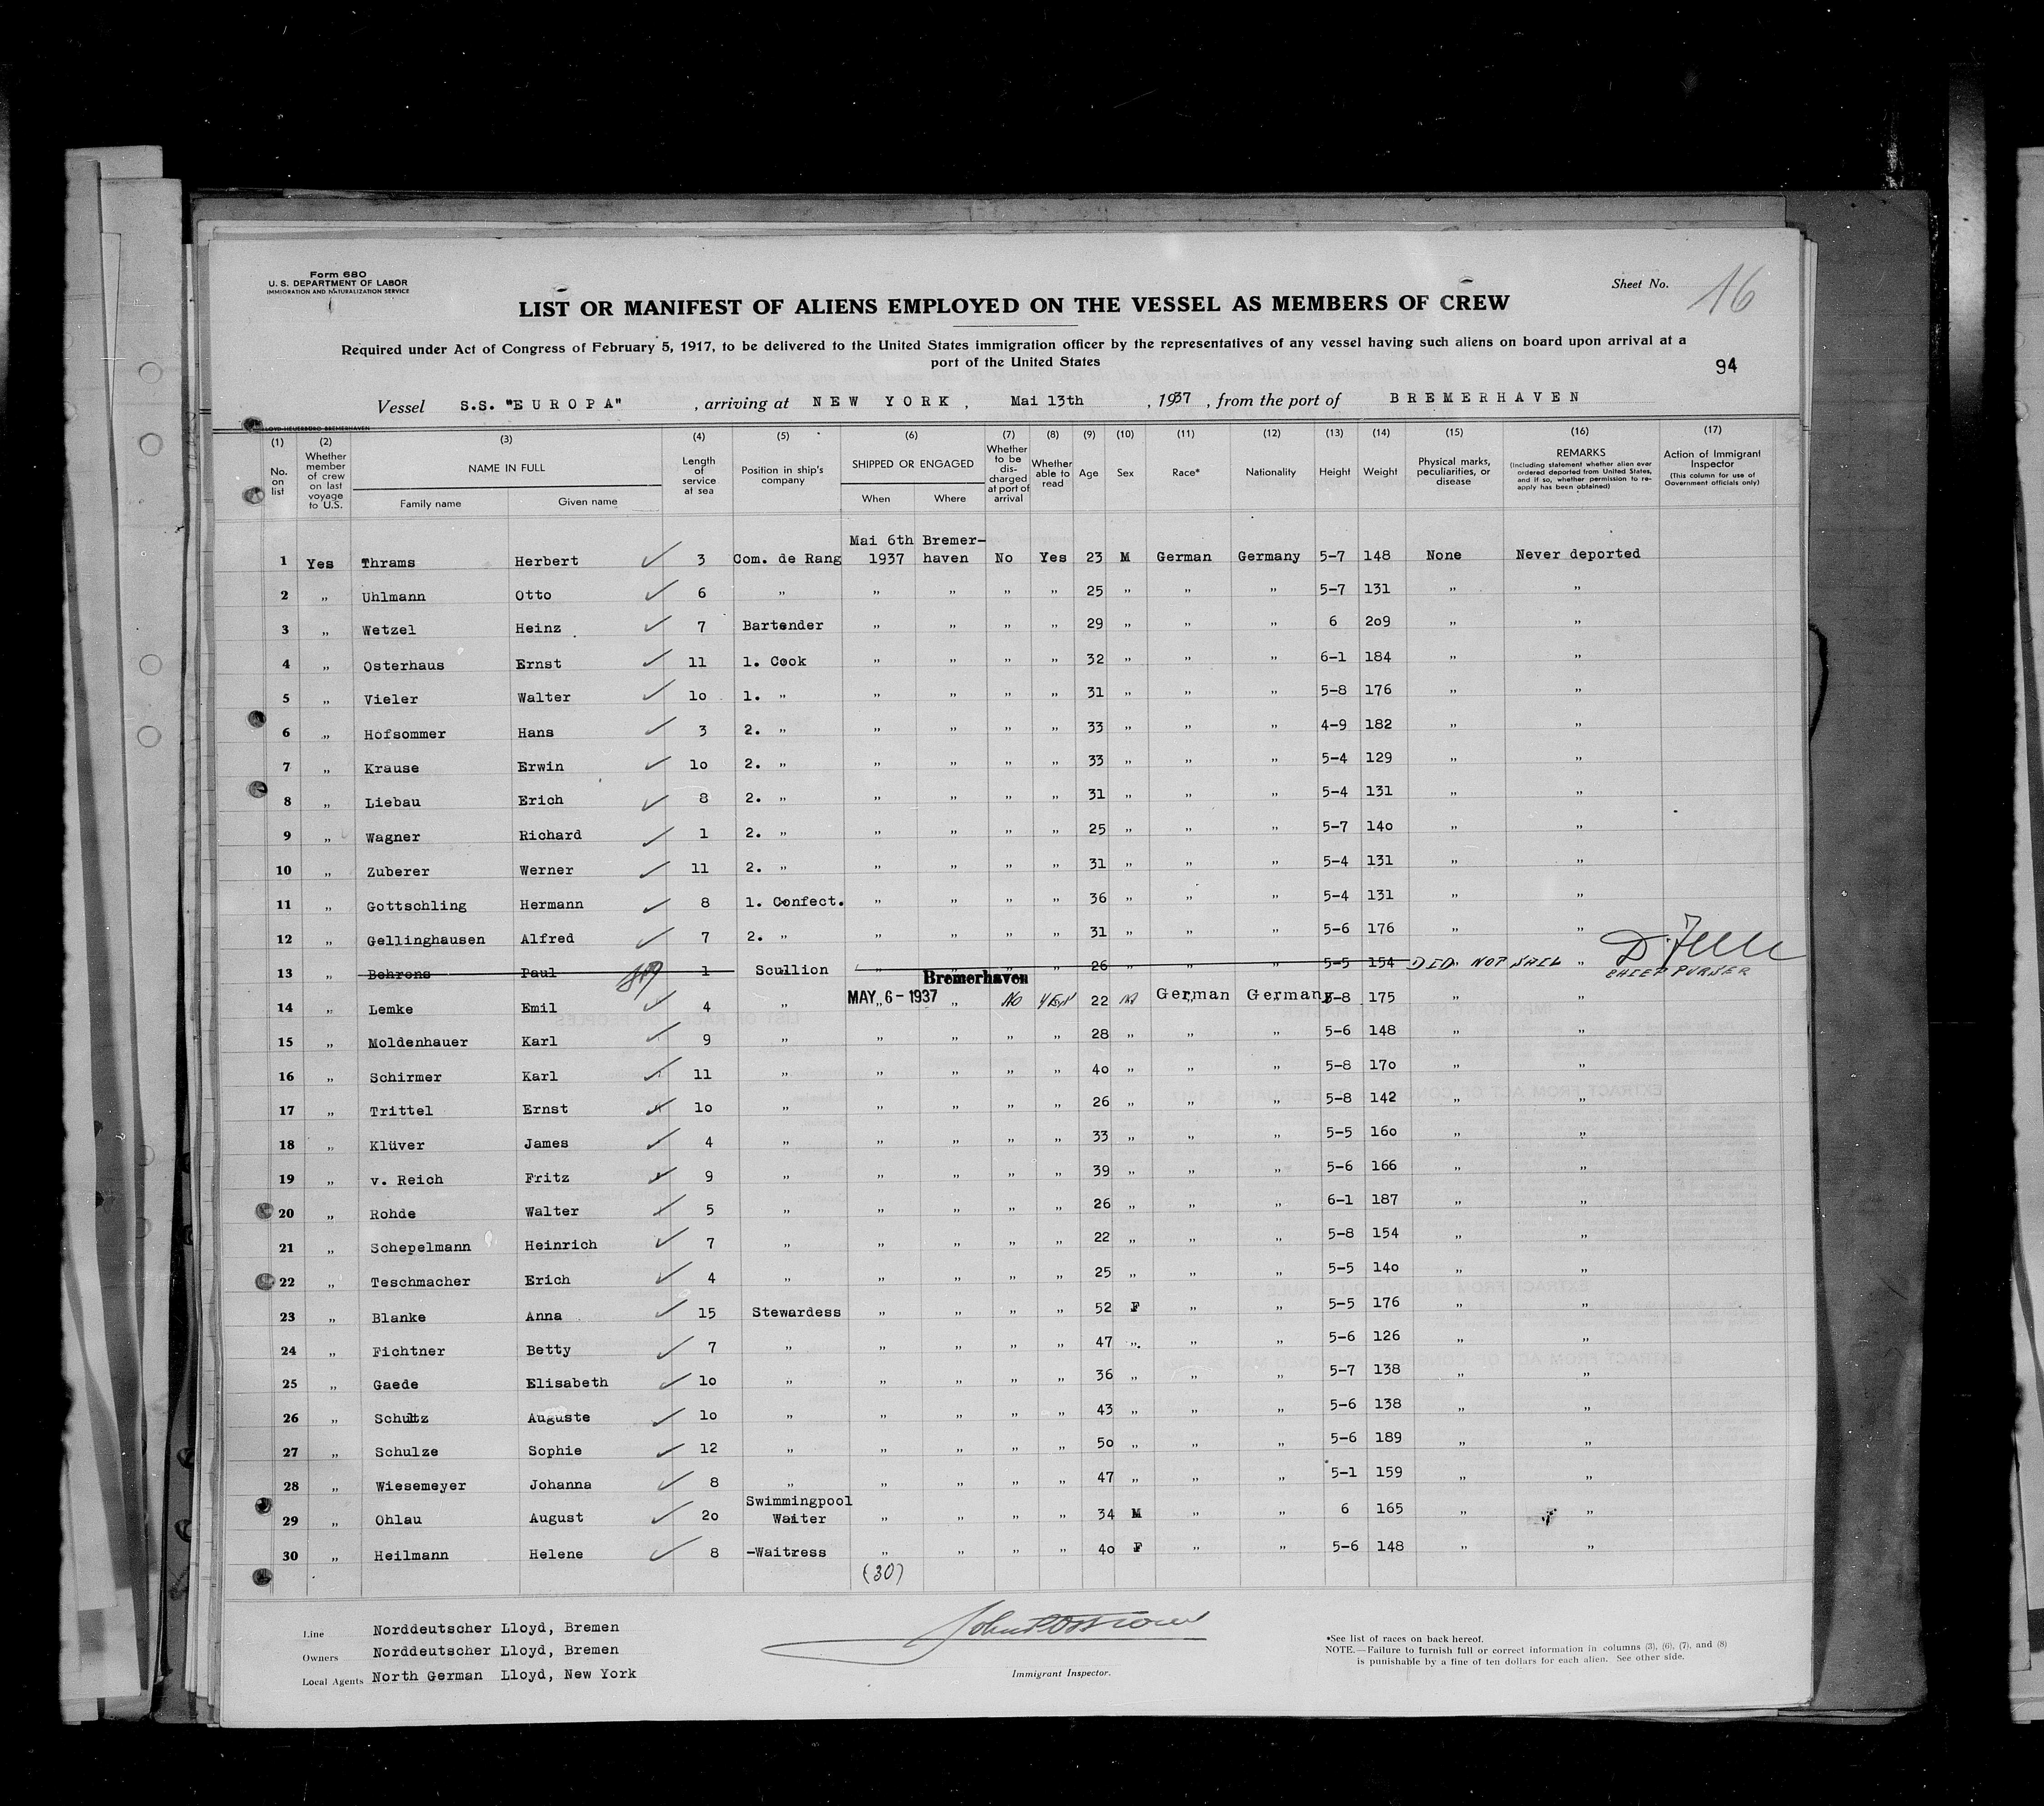 Form 680
U. S. DEPARTMENT OF LABOR
IMMIGRATION AND NATURALIZATION SERVICE
Sheet No. 16
LIST OR MANIFEST OF ALIENS EMPLOYED ON THE VESSEL AS MEMBERS OF CREW
Required under Act of Congress of February 5, 1917, to be delivered to the United States immigration officer by the representatives of any vessel having such aliens on board upon arrival at a
port of the United States
94
Vessel S.S. "EUROPA" , arriving at NEW YORK, Mai 13th , 1937 , from the port of BREMERHAVEN
(1) (2) (3) (4) (5) (6) (7) (8) (9) (10) (11) (12) (13) (14) (15) (16) (17)
No. on list
Whether member of crew on last voyage to U.S.
NAME IN FULL
Family name Given name
Length of service at sea
Position in ship's company
SHIPPED OR ENGAGED
When Where
Whether to be discharged at port of arrival
Whether able to read
Age
Sex
Race*
Nationality
Height
Weight
Physical marks, peculiarities, or disease
REMARKS
(Including statement whether alien ever ordered deported from United States, and if so, whether permission to re-apply has been obtained)
Action of Immigrant Inspector
(This column for use of Government officials only)
Mai 6th Bremer-
1 Yes Thrams Herbert 3 Com. de Rang 1937 haven No Yes 23 M German Germany 5-7 148 None Never deported
2 " Uhlmann Otto 6 " " " " " 25 " " " 5-7 131 " "
3 " Wetzel Heinz 7 Bartender " " " " 29 " " " 6 209 " "
4 " Osterhaus Ernst 11 1. Cook " " " " 32 " " " 6-1 184 " "
5 " Vieler Walter 10 1. " " " " " 31 " " " 5-8 176 " "
6 " Hofsommer Hans 3 2. " " " " " 33 " " " 4-9 182 " "
7 " Krause Erwin 10 2. " " " " " 33 " " " 5-4 129 " "
8 " Liebau Erich 8 2. " " " " " 31 " " " 5-4 131 " "
9 " Wagner Richard 1 2. " " " " " 25 " " " 5-7 140 " "
10 " Zuberer Werner 11 2. " " " " " 31 " " " 5-4 131 " "
11 " Gottschling Hermann 8 1. Confect. " " " " 36 " " " 5-4 131 " "
12 " Gellinghausen Alfred 7 2. " " " " " 31 " " " 5-6 176 " "
13 " Behrens Paul 1 Scullion " " " " 26 " " " 5-5 154 DID NOT SAIL "
CHIEF PURSER
Bremerhaven
14 " Lemke Emil 4 " MAY 6-1937 " No Yes 22 M German Germany 5-8 175 " "
15 " Moldenhauer Karl 9 " " " " " 28 " " " 5-6 148 " "
16 " Schirmer Karl 11 " " " " " 40 " " " 5-8 170 " "
17 " Trittel Ernst 10 " " " " " 26 " " " 5-8 142 " "
18 " Klüver James 4 " " " " " 33 " " " 5-5 160 " "
19 " v. Reich Fritz 9 " " " " " 39 " " " 5-6 166 " "
20 " Rohde Walter 5 " " " " " 26 " " " 6-1 187 " "
21 " Schepelmann Heinrich 7 " " " " " 22 " " " 5-8 154 " "
22 " Teschmacher Erich 4 " " " " " 25 " " " 5-5 140 " "
23 " Blanke Anna 15 Stewardess " " " " 52 F " " 5-5 176 " "
24 " Fichtner Betty 7 " " " " " 47 " " " 5-6 126 " "
25 " Gaede Elisabeth 10 " " " " " 36 " " " 5-7 138 " "
26 " Schultz Auguste 10 " " " " " 43 " " " 5-6 138 " "
27 " Schulze Sophie 12 " " " " " 50 " " " 5-6 189 " "
28 " Wiesemeyer Johanna 8 " " " " " 47 " " " 5-1 159 " "
Swimmingpool
29 " Ohlau August 20 Waiter " " " " 34 M " " 6 165 " "
30 " Heilmann Helene 8 -Waitress " " " " 40 F " " 5-6 148 " "
(30)
Line Norddeutscher Lloyd, Bremen
Owners Norddeutscher Lloyd, Bremen
Local Agents North German Lloyd, New York
Immigrant Inspector.
*See list of races on back hereof.
NOTE.—Failure to furnish full or correct information in columns (3), (6), (7), and (8)
is punishable by a fine of ten dollars for each alien. See other side.